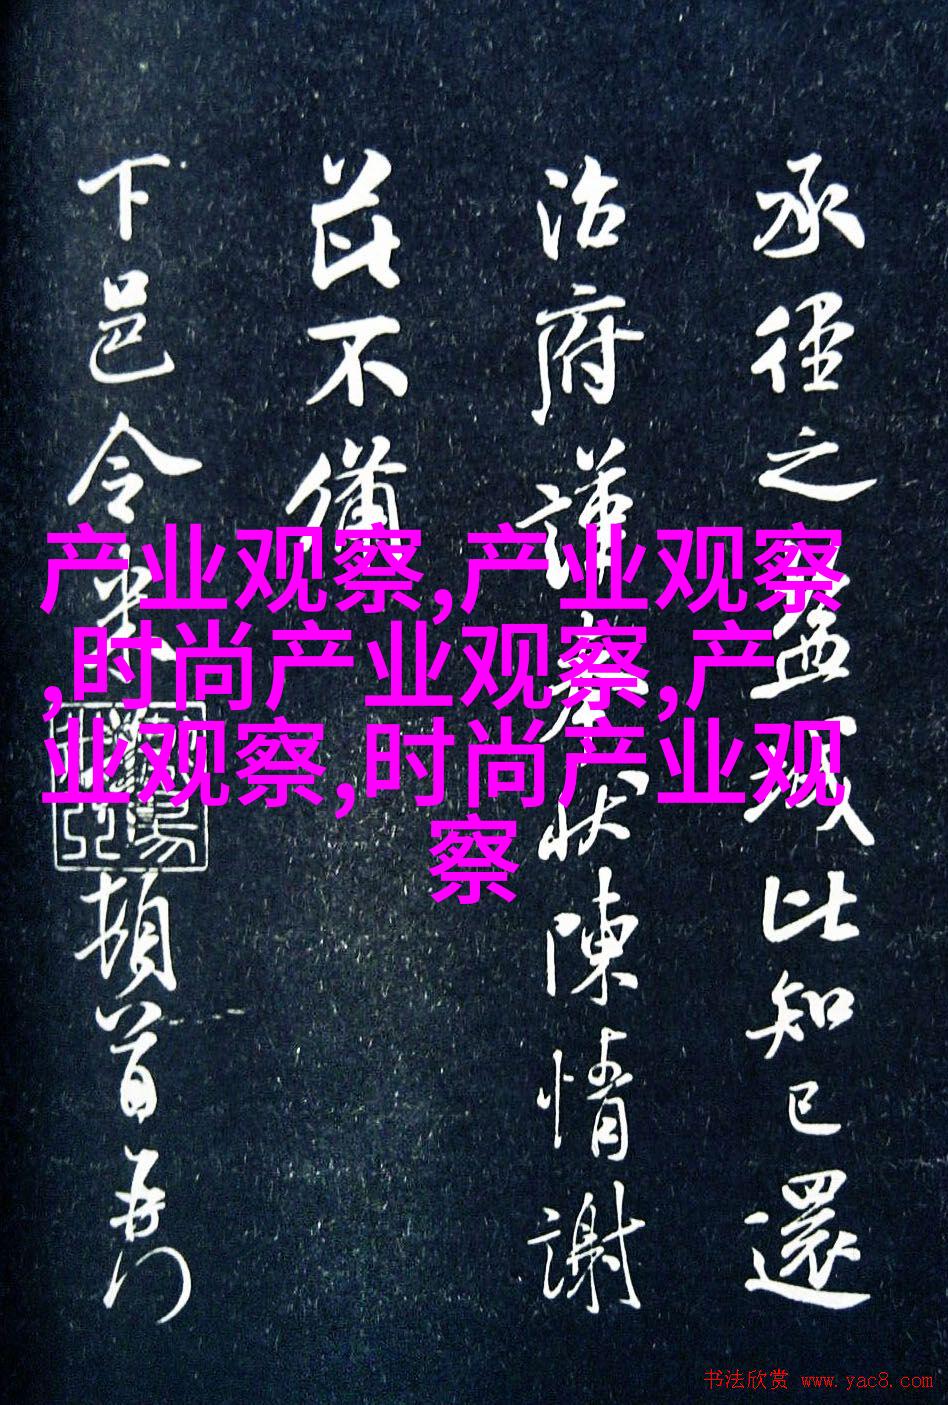 承徑之盜域比知已還
治府謹奉狀陳情謝
茲不備
下邑令米頓首再
产业观察,产业观察
,时尚产业观察,产
业观察,时尚产业观
察
书法欣赏 www.yac8.com